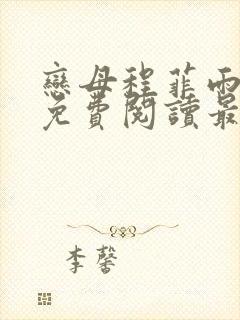 戀母程菲雨
免費閱讀最
李馨